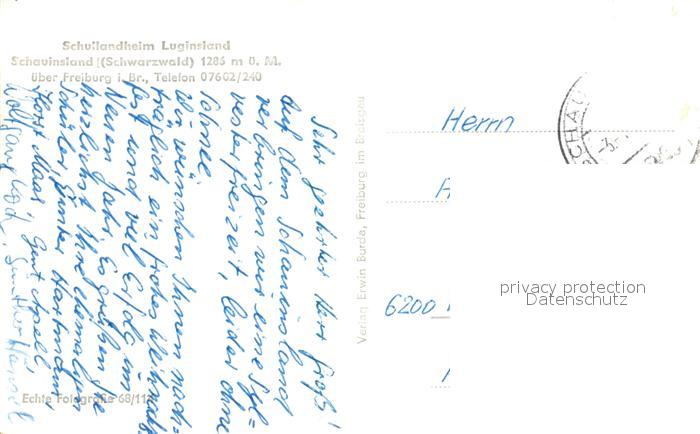 Schullandheim Luginsland
Schauinsland (Schwarzwald) 1286 m ü. M.
über Freiburg i. Br., Telefon 07602/240
Sehr geehrter Herr
auf dem Schauinsland
verbringen wir eine Syl=
vesterfreizeit, leider ohne
Schnee.
Wir wünschen Ihnen nach=
träglich ein frohes Weihnachts=
fest und viel Erfolg im
Neuen Jahr. Es grüßen Sie
herzlichst Ihre ehemaligen
Schüler, Günter Hartmann,
Horst Maas, Gert Apell,
Wolfgang Koch, Günther Hänsel
Echte Fotografie 68/11
Verlag Erwin Burda, Freiburg im Breisgau
Herrn
6200
SCHAU
privacy protection
Datenschutz